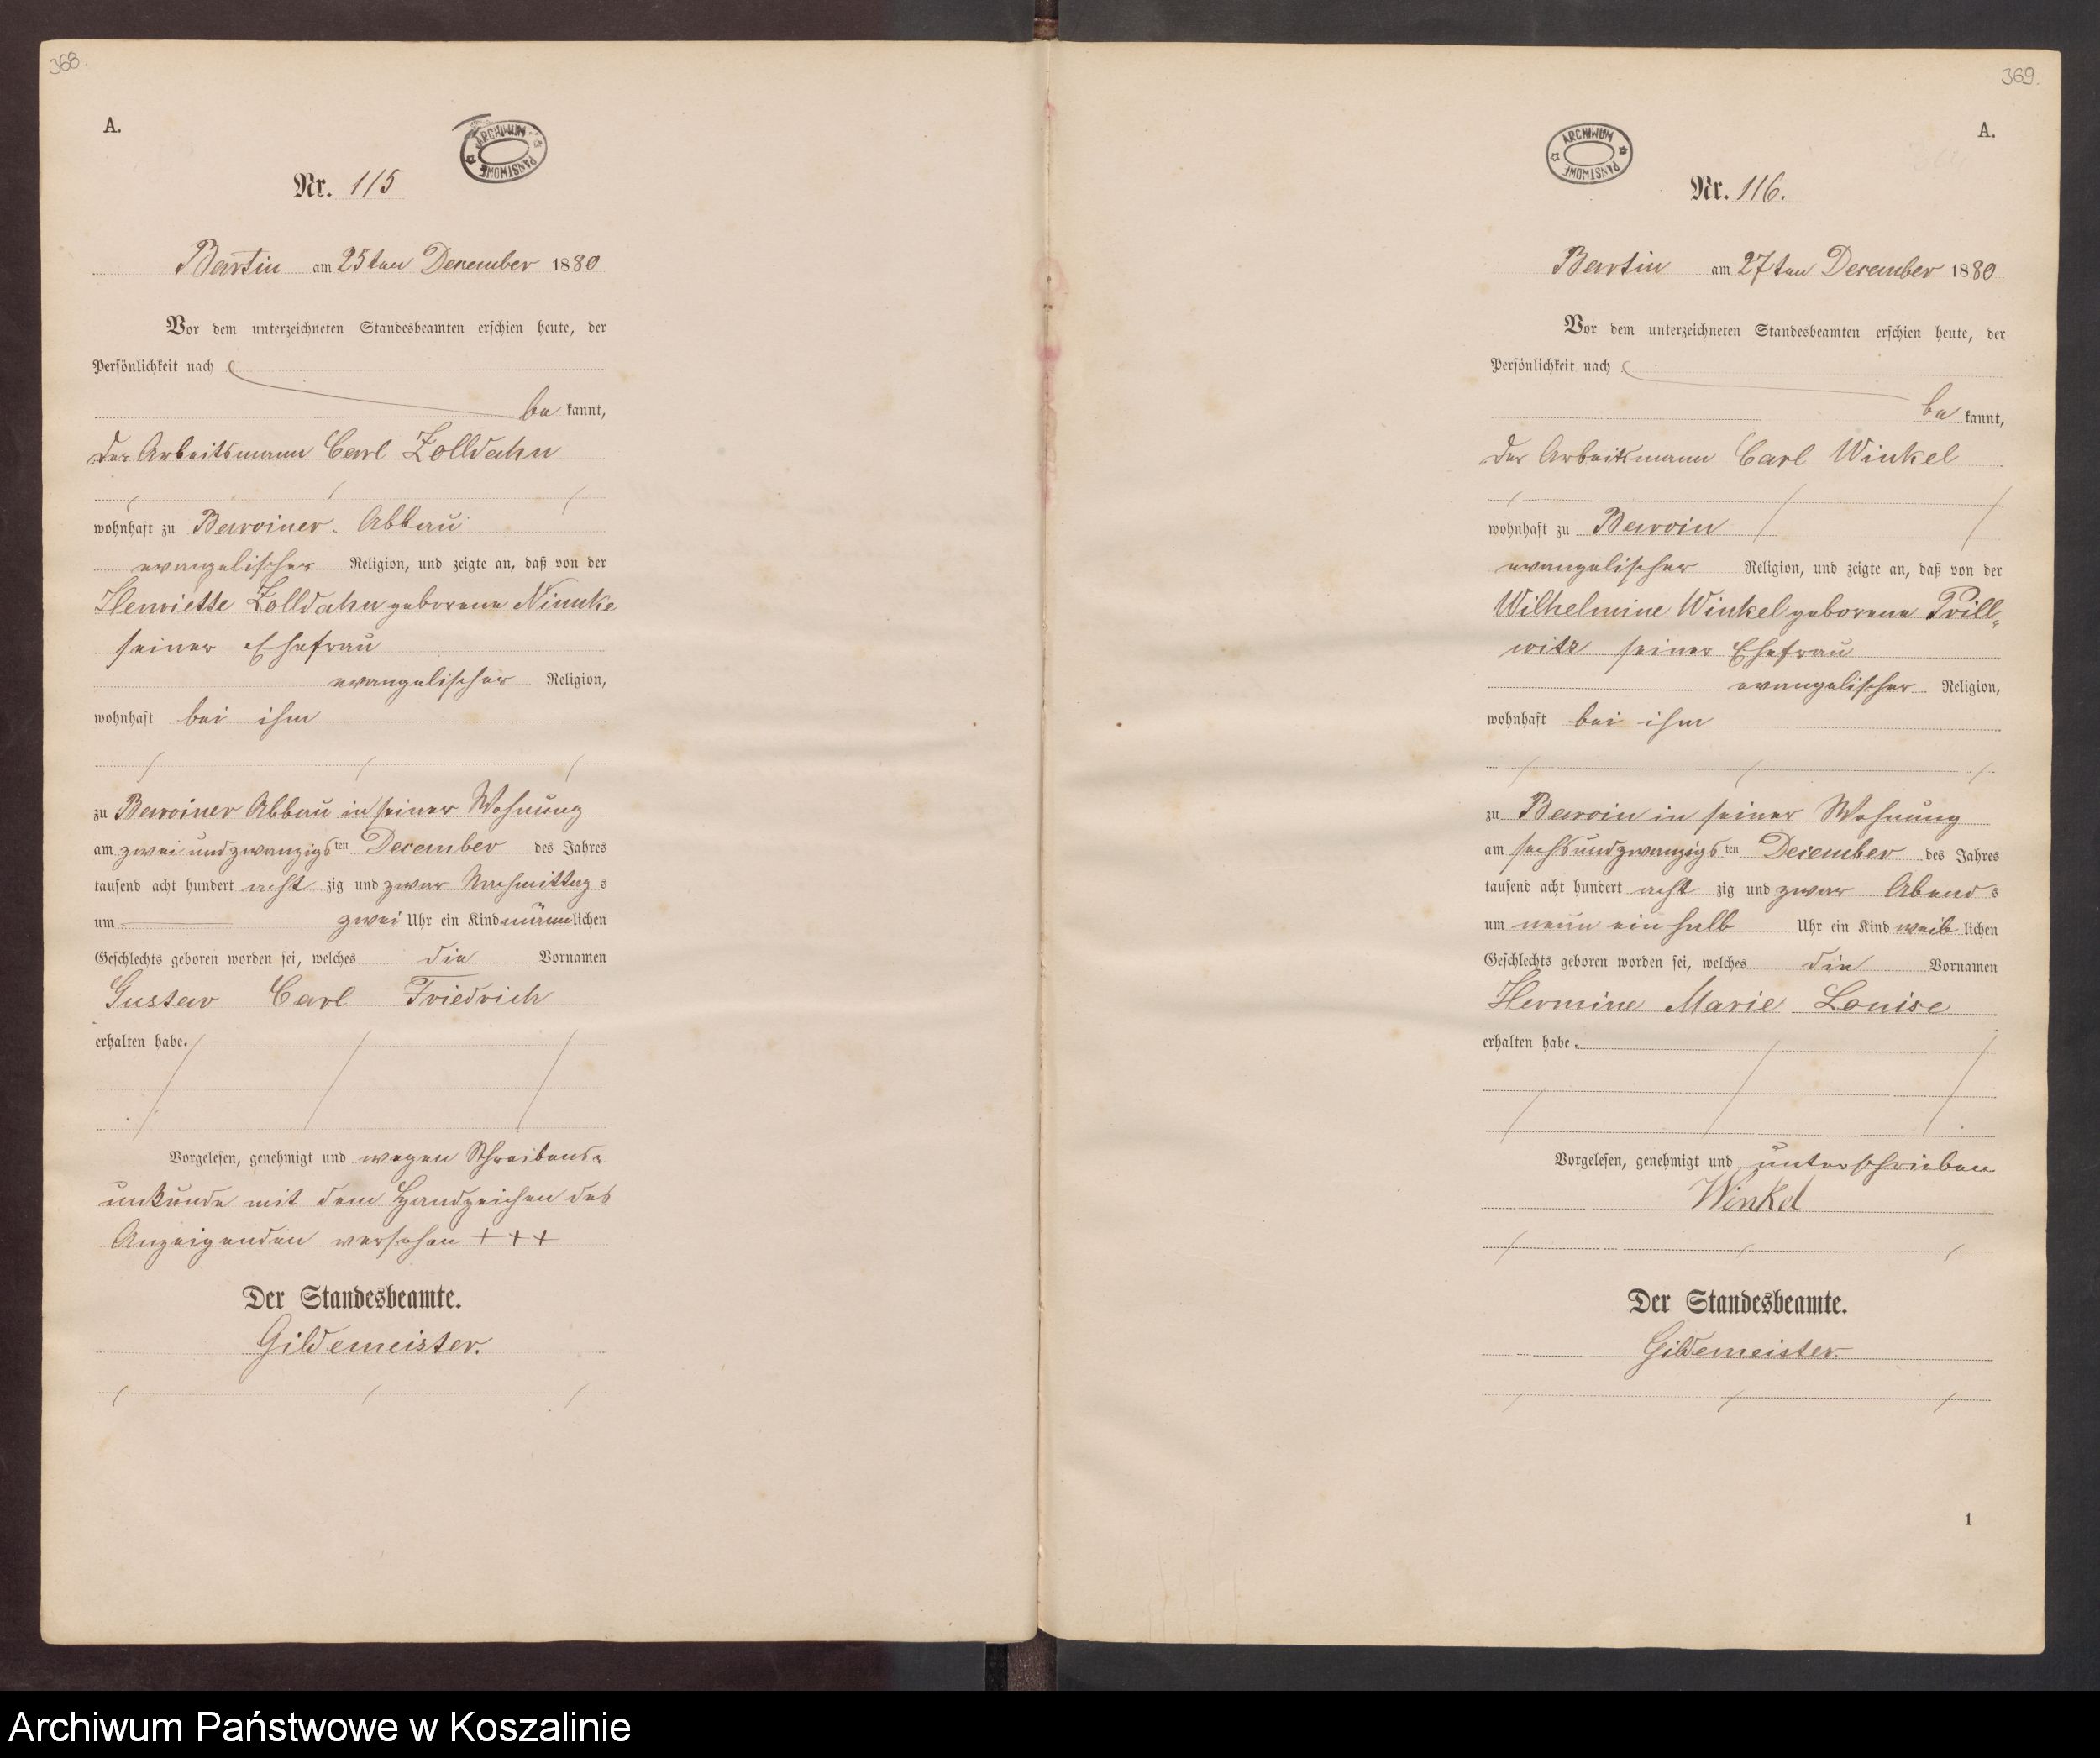 368.
A.
ARCHIWUM PAŃSTWOWE
Nr. 115
Bartin am 25ten December 1880
Vor dem unterzeichneten Standesbeamten erschien heute, der
Persönlichkeit nach
be kannt,
der Arbeitsmann Carl Zolldahn
wohnhaft zu Barviner Abbau
evangelischer Religion, und zeigte an, daß von der
Henriette Zolldahn geborene Nimmke
seiner Ehefrau
evangelischer Religion,
wohnhaft bei ihm
zu Barviner Abbau in seiner Wohnung
am zwei und zwanzigsten December des Jahres
tausend acht hundert acht zig und zwar Nachmittag s
um zwei Uhr ein Kind männlichen
Geschlechts geboren worden sei, welches die Vornamen
Gustav Carl Friedrich
erhalten habe.
Vorgelesen, genehmigt und wegen Schreibens-
unkunde mit dem Handzeichen des
Anzeigenden versehen + + +
Der Standesbeamte.
Gildemeister.
369.
A.
ARCHIWUM PAŃSTWOWE
Nr. 116.
Bartin am 27ten December 1880
Vor dem unterzeichneten Standesbeamten erschien heute, der
Persönlichkeit nach
be kannt,
der Arbeitsmann Carl Winkel
wohnhaft zu Barvin
evangelischer Religion, und zeigte an, daß von der
Wilhelmine Winkel geborene Prill-
witz seiner Ehefrau
evangelischer Religion,
wohnhaft bei ihm
zu Barvin in seiner Wohnung
am sechsundzwanzigsten December des Jahres
tausend acht hundert acht zig und zwar Abend s
um neun ein halb Uhr ein Kind weib lichen
Geschlechts geboren worden sei, welches die Vornamen
Hermine Marie Louise
erhalten habe.
Vorgelesen, genehmigt und unterschrieben
Winkel
Der Standesbeamte.
Gildemeister.
1
Archiwum Państwowe w Koszalinie